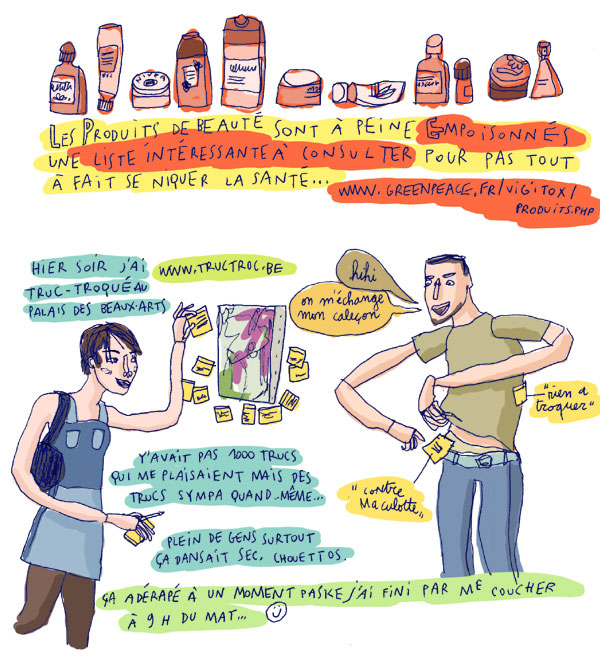 NIVEA
LES PRODUITS DE BEAUTÉ SONT À PEINE EMPOISONNÉS
UNE LISTE INTÉRESSANTE À CONSULTER POUR PAS TOUT
À FAIT SE NIQUER LA SANTÉ...
WWW.GREENPEACE.FR/VIGITOX/
PRODUITS.PHP
HIER SOIR J'AI
TRUC-TROQUÉ AU
PALAIS DES BEAUX-ARTS
WWW.TRUCTROC.BE
hihi
on m'échange
mon caleçon
"rien à
troquer"
"contre
ma culotte"
Y'AVAIT PAS 1000 TRUCS
QUI ME PLAISAIENT MAIS DES
TRUCS SYMPA QUAND-MÊME...
PLEIN DE GENS SURTOUT
ÇA DANSAIT SEC, CHOUETTOS.
ÇA A DÉRAPÉ À UN MOMENT PASKE J'AI FINI PAR ME COUCHER
À 9 H DU MAT...